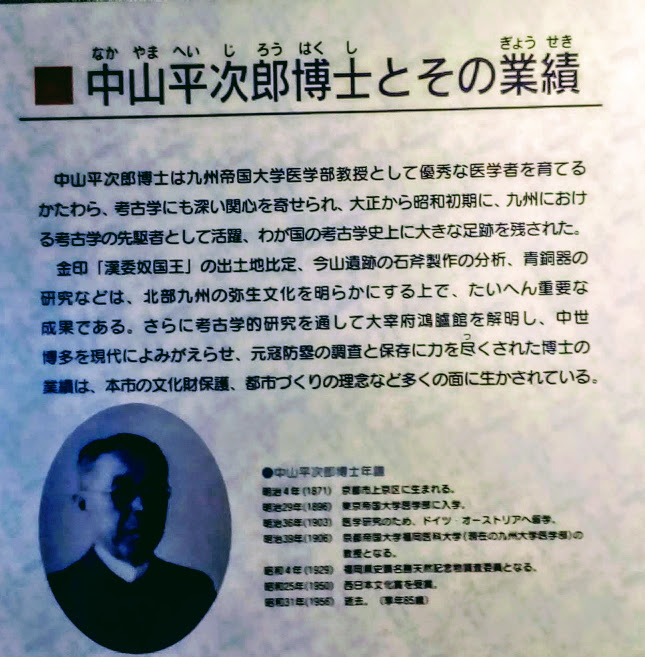 なか やま へい じ ろう はく し ぎょう せき
■中山平次郎博士とその業績
中山平次郎博士は九州帝国大学医学部教授として優秀な医学者を育てる
かたわら、考古学にも深い関心を寄せられ、大正から昭和初期に、九州におけ
る考古学の先駆者として活躍、わが国の考古学史上に大きな足跡を残された。
金印「漢委奴国王」の出土地比定、今山遺跡の石斧製作の分析、青銅器の
研究などは、北部九州の弥生文化を明らかにする上で、たいへん重要な
成果である。さらに考古学的研究を通して大宰府鴻臚館を解明し、中世
つ
博多を現代によみがえらせ、元寇防塁の調査と保存に力を尽くされた博士の
業績は、本市の文化財保護、都市づくりの理念など多くの面に生かされている。
●中山平次郎博士年譜
明治4年(1871) 京都市上京区に生まれる。
明治29年(1896) 東京帝国大学医学部に入学。
明治36年(1903) 医学研究のため、ドイツ・オーストリアへ留学。
明治39年(1906) 京都帝国大学福岡医科大学(現在の九州大学医学部)の
教授となる。
昭和4年(1929) 福岡県史蹟名勝天然紀念物調査委員となる。
昭和25年(1950) 西日本文化賞を受賞。
昭和31年(1956) 逝去。(享年85歳)